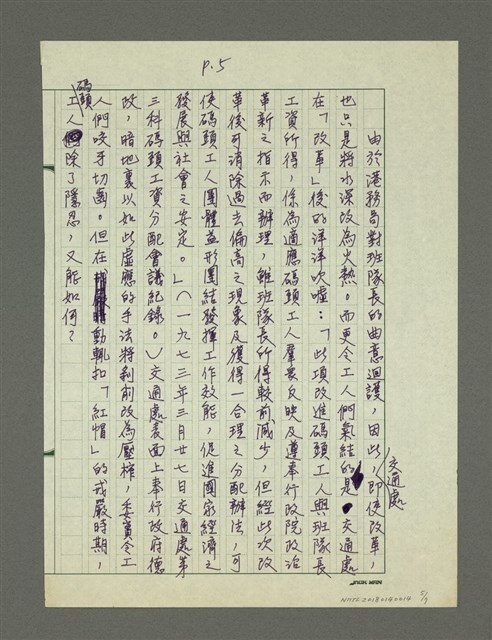 P.5
由於港務局對班隊長的曲意迴護，因此，即使改革，
也只是將水深改為火熱。而更令工人們氣結的是，交通處
在「改革」後的洋洋吹噓：「此項改進碼頭工人與班隊長
工資所得，係為適應碼頭工人羣衆反映及遵奉行政院政治
革新之指示而辦理，雖班隊長所得較前減少，但經此次改
革後可消除過去偏高之現象及獲得一合理之分配辦法，可
使碼頭工人團體益形團結發揮工作效能，促進國家經濟之
發展與社會之安定。」（一九七三年三月廿七日交通處第
三科碼頭工資分配會議紀錄。）交通處表面上奉行政府德
政，暗地裏以如此虛應的手法將剝削改為壓榨，委實令工
人們咬牙切齒。但在動輒扣「紅帽」的戒嚴時期，
碼頭工人除了隱忍，又能如何？
交通處
NMTL20180142014
5/9